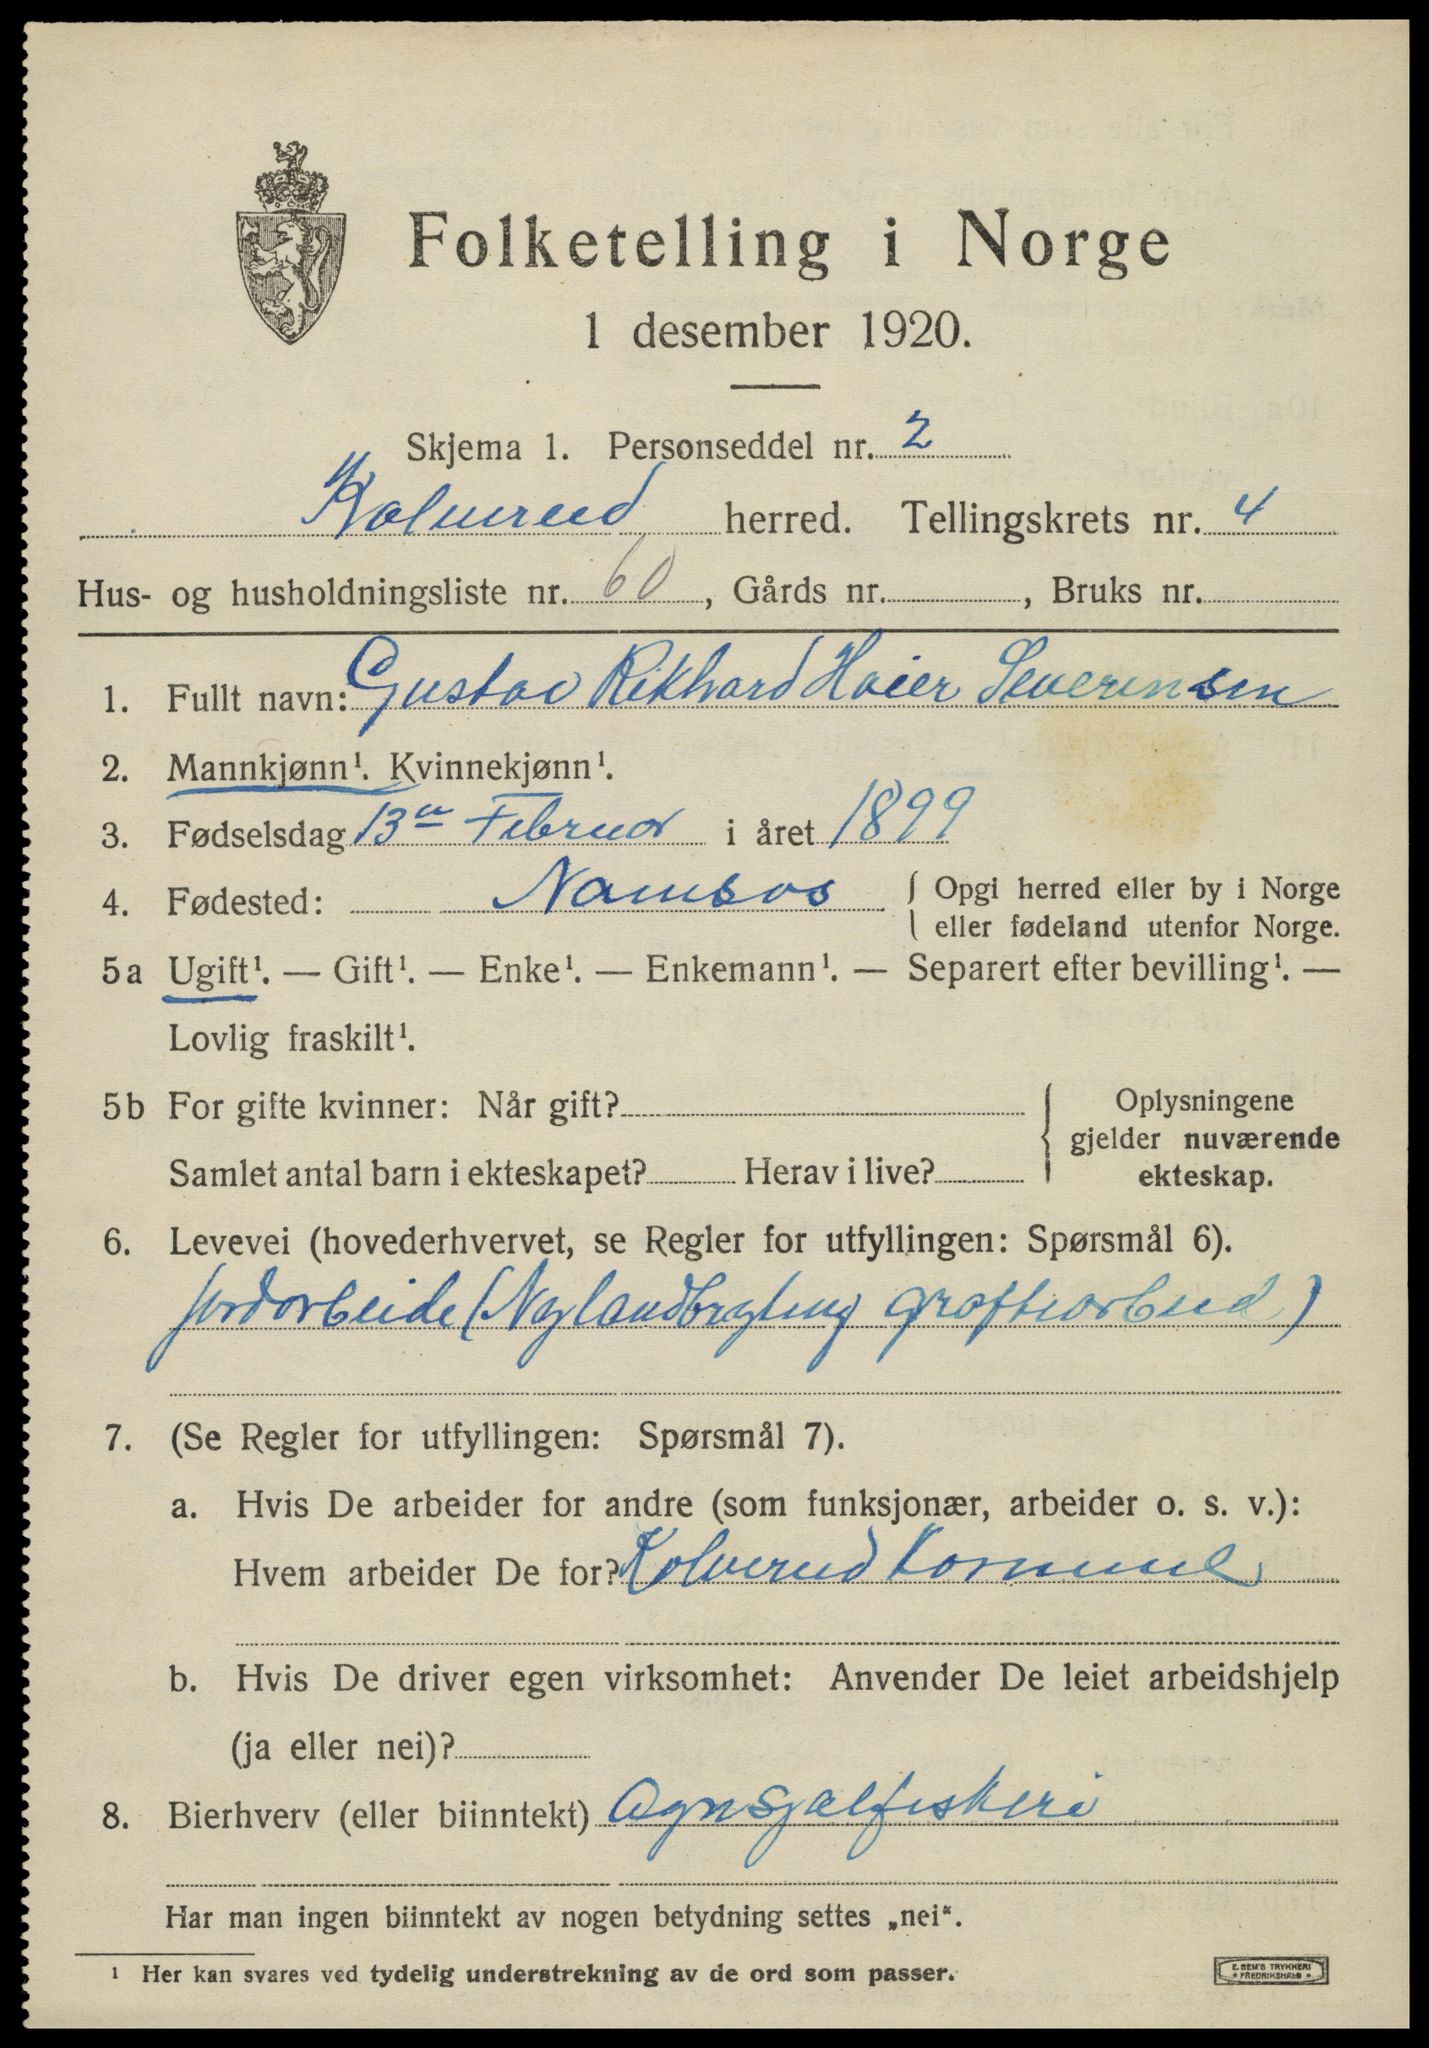 Folketelling i Norge
1 desember 1920.
Skjema 1. Personseddel nr. 2
Kolvereid herred. Tellingskrets nr. 4
Hus- og husholdningsliste nr. 60, Gårds nr. , Bruks nr.
1. Fullt navn: Gustav Rikhard Høier Severinsen
2. Mannkjønn¹. Kvinnekjønn¹.
3. Fødselsdag 13de Februar i året 1899
4. Fødested: Namsos { Opgi herred eller by i Norge
eller fødeland utenfor Norge.
5a Ugift¹. — Gift¹. — Enke¹. — Enkemann¹. — Separert efter bevilling¹. —
Lovlig fraskilt¹.
5b For gifte kvinner: Når gift? { Oplysningene
gjelder nuværende
Samlet antal barn i ekteskapet? Herav i live? ekteskap.
6. Levevei (hovederhvervet, se Regler for utfyllingen: Spørsmål 6).
jordarbeide (Nylandbryting grøftearbeid)
7. (Se Regler for utfyllingen: Spørsmål 7).
a. Hvis De arbeider for andre (som funksjonær, arbeider o. s. v.):
Hvem arbeider De for? Kolvereid Kommune
b. Hvis De driver egen virksomhet: Anvender De leiet arbeidshjelp
(ja eller nei)?
8. Bierhverv (eller biinntekt)
Har man ingen biinntekt av nogen betydning settes „nei“.
¹ Her kan svares ved tydelig understrekning av de ord som passer.
E. SEM'S TRYKKERI
FREDRIKSHALD